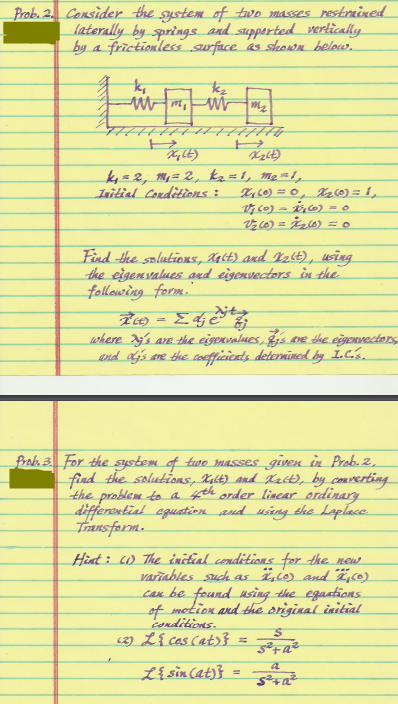 Prob. 2. Consider the system of two masses restrained
laterally by springs and supported vertically
by a frictionless surface as shown below.
k₁ k₂
m₁ m₂
x₁(t) x₂(t)
k₁ = 2, m₁ = 2, k₂ = 1, m₂ = 1,
Initial Conditions : x₁(0) = 0, x₂(0) = 1,
v₁(0) = ẋ₁(0) = 0
v₂(0) = ẋ₂(0) = 0
Find the solutions, x₁(t) and x₂(t), using
the eigenvalues and eigenvectors in the
following form.
x⃗(t) = Σ αⱼ e^{λⱼt} q⃗ⱼ
where λⱼ's are the eigenvalues, q⃗ⱼ's are the eigenvectors
and αⱼ's are the coefficients determined by I.C.'s.
Prob. 3. For the system of two masses given in Prob. 2,
find the solutions, x₁(t) and x₂(t), by converting
the problem to a 4th order linear ordinary
differential equation and using the Laplace
Transform.
Hint : (1) The initial conditions for the new
variables such as ẍ₁(0) and x⃛₁(0)
can be found using the equations
of motion and the original initial
conditions.
(2) ℒ{cos(at)} = s/(s²+a²)
ℒ{sin(at)} = a/(s²+a²)